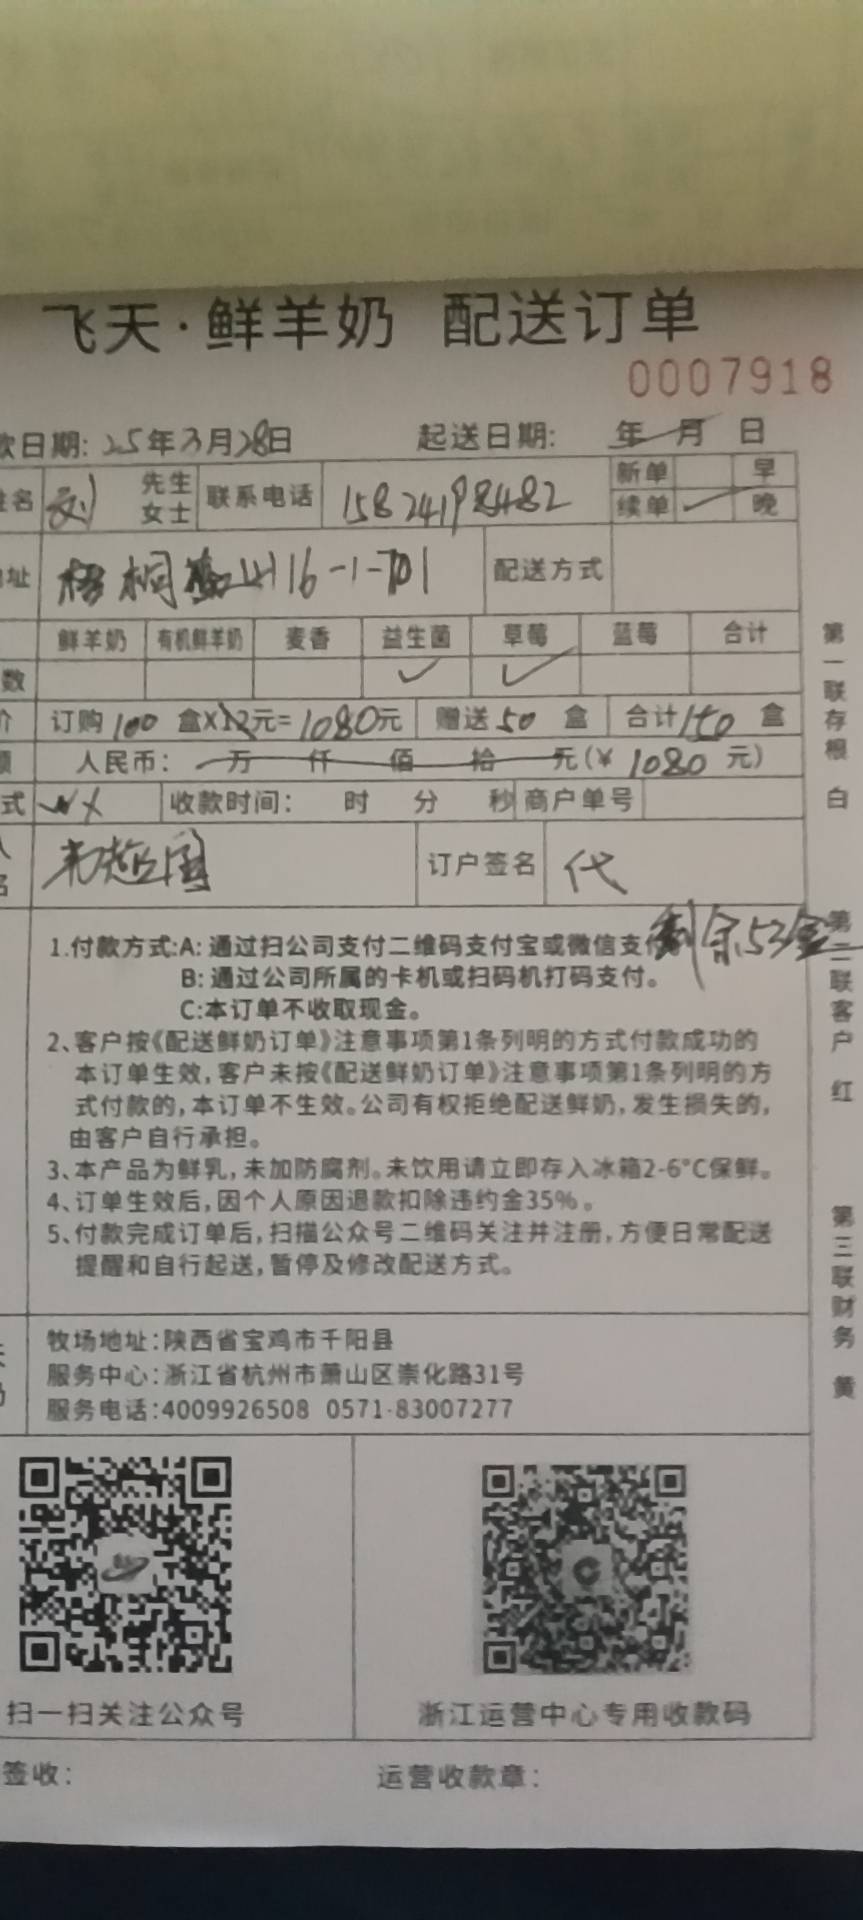 飞天·鲜羊奶 配送订单
0007918
款日期: 25年3月28日 起送日期: 年 月 日
姓名 刘 先生 女士 联系电话 15824198482 新单 早
续单 ✓ 晚
址 梧桐 山16-1-701 配送方式
鲜羊奶 有机鲜羊奶 麦香 益生菌 草莓 蓝莓 合计
数 ✓ ✓
价 订购100 盒X12元=1080元 赠送50 盒 合计150 盒
额 人民币: 万 仟 佰 拾 元(¥ 1080 元)
式 wx 收款时间: 时 分 秒 商户单号
人
名 超国 订户签名 代
剩余53盒
1.付款方式:A: 通过扫公司支付二维码支付宝或微信支付
B: 通过公司所属的卡机或扫码机打码支付。
C:本订单不收取现金。
2、客户按《配送鲜奶订单》注意事项第1条列明的方式付款成功的
本订单生效,客户未按《配送鲜奶订单》注意事项第1条列明的方
式付款的,本订单不生效。公司有权拒绝配送鲜奶,发生损失的,
由客户自行承担。
3、本产品为鲜乳,未加防腐剂。未饮用请立即存入冰箱2-6°C保鲜。
4、订单生效后,因个人原因退款扣除违约金35%。
5、付款完成订单后,扫描公众号二维码关注并注册,方便日常配送
提醒和自行起送,暂停及修改配送方式。
牧场地址:陕西省宝鸡市千阳县
服务中心:浙江省杭州市萧山区崇化路31号
服务电话:4009926508 0571-83007277
扫一扫关注公众号 浙江运营中心专用收款码
签收: 运营收款章:
第一联存根 白
第二联客户 红
第三联财务 黄